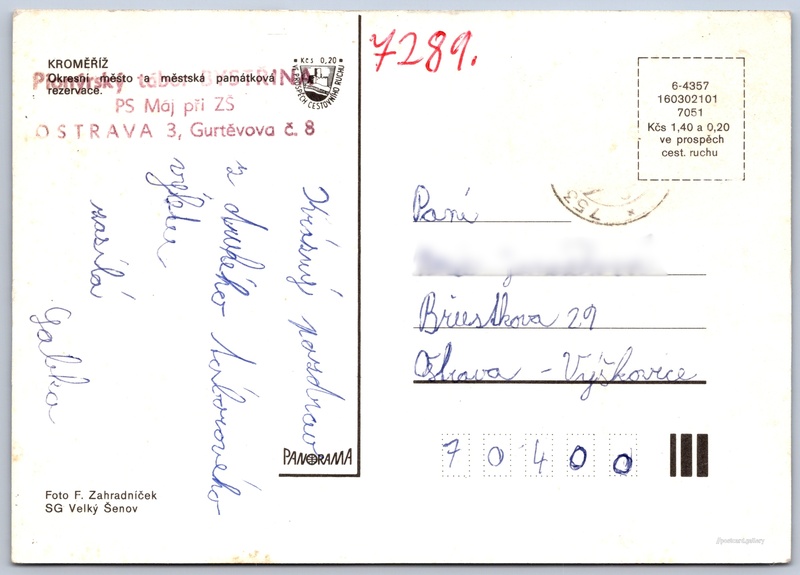 KROMĚŘÍŽ
Okresní město a městská památková
rezervace.
Pionýrský tábor BYSTŘINA
PS Máj při ZŠ
OSTRAVA 3, Gurťevova č. 8
Kčs 0,20
VE PROSPĚCH CESTOVNÍHO RUCHU
7289.
6-4357
160302101
7051
Kčs 1,40 a 0,20
ve prospěch
cest. ruchu
753
Krásný pozdrav
z druhého táborového
výletu
zasílá
Gabka
Paní
29
Ostrava - Výškovice
70400
PANORAMA
Foto F. Zahradníček
SG Velký Šenov